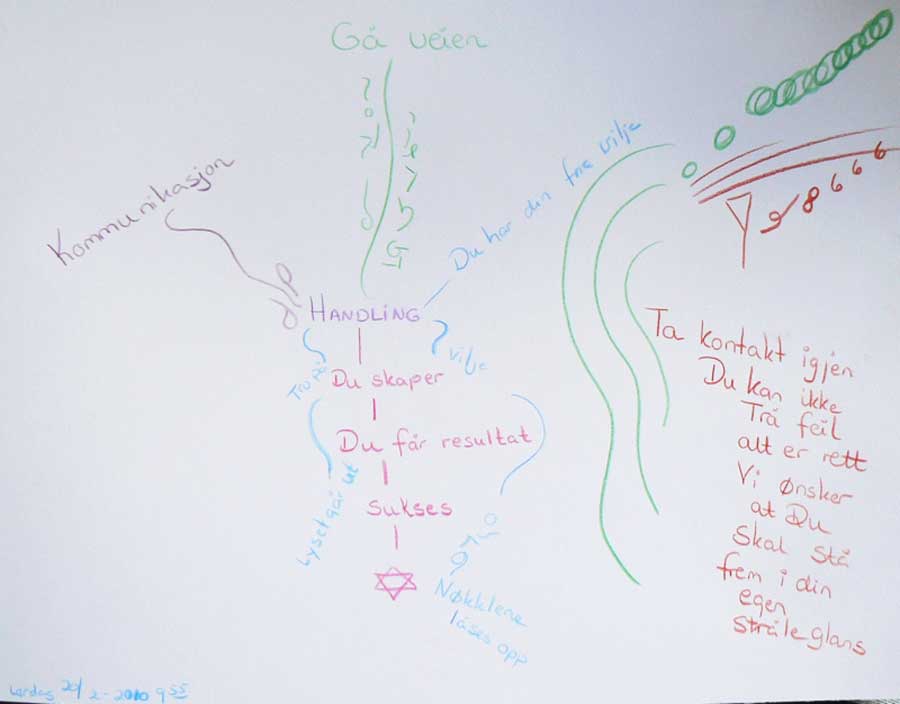 Gå veien
Kommunikasjon
Du har din frie vilje
HANDLING
Tro på
Vilje
Du skaper
Du får resultat
Lyset går ut
Sukses
Nøkklene
låses opp
9 8 6 6 6
Ta kontakt igjen
Du kan ikke
Trå feil
alt er rett
Vi ønsker
at Du
Skal stå
frem i din
egen
stråleglans
Lørdag 20/2-2010 9 55